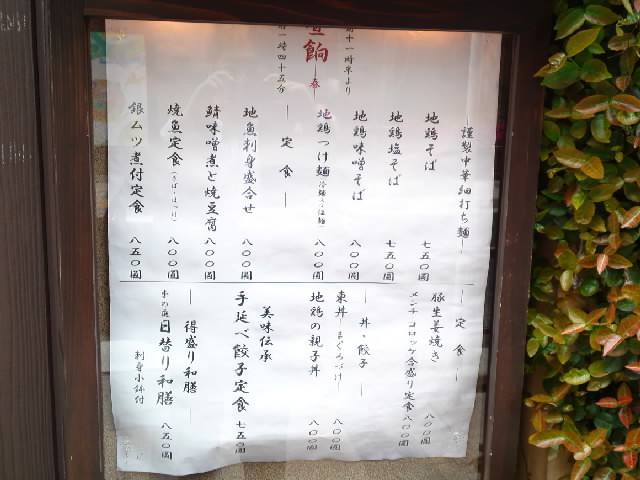 昼餉
十一時半より
一時四十五分
謹製中華細打ち麺
地鶏そば 七五〇圓
地鶏塩そば 七五〇圓
地鶏味噌そば 八〇〇圓
地鶏つけ麺 八〇〇圓
定食
地魚刺身盛合せ 八〇〇圓
鯖味噌煮と焼豆腐 八〇〇圓
焼魚定食 八〇〇圓
銀ムツ煮付定食 八五〇圓
定食
豚生姜焼き 八〇〇圓
メンチコロッケ合盛り定食 八〇〇圓
丼・餃子
東丼 まぐろづけ 八〇〇圓
地鶏の親子丼 八〇〇圓
美味伝承
手延べ餃子定食 七五〇圓
得盛り和膳
日替り和膳 八五〇圓
刺身小鉢付